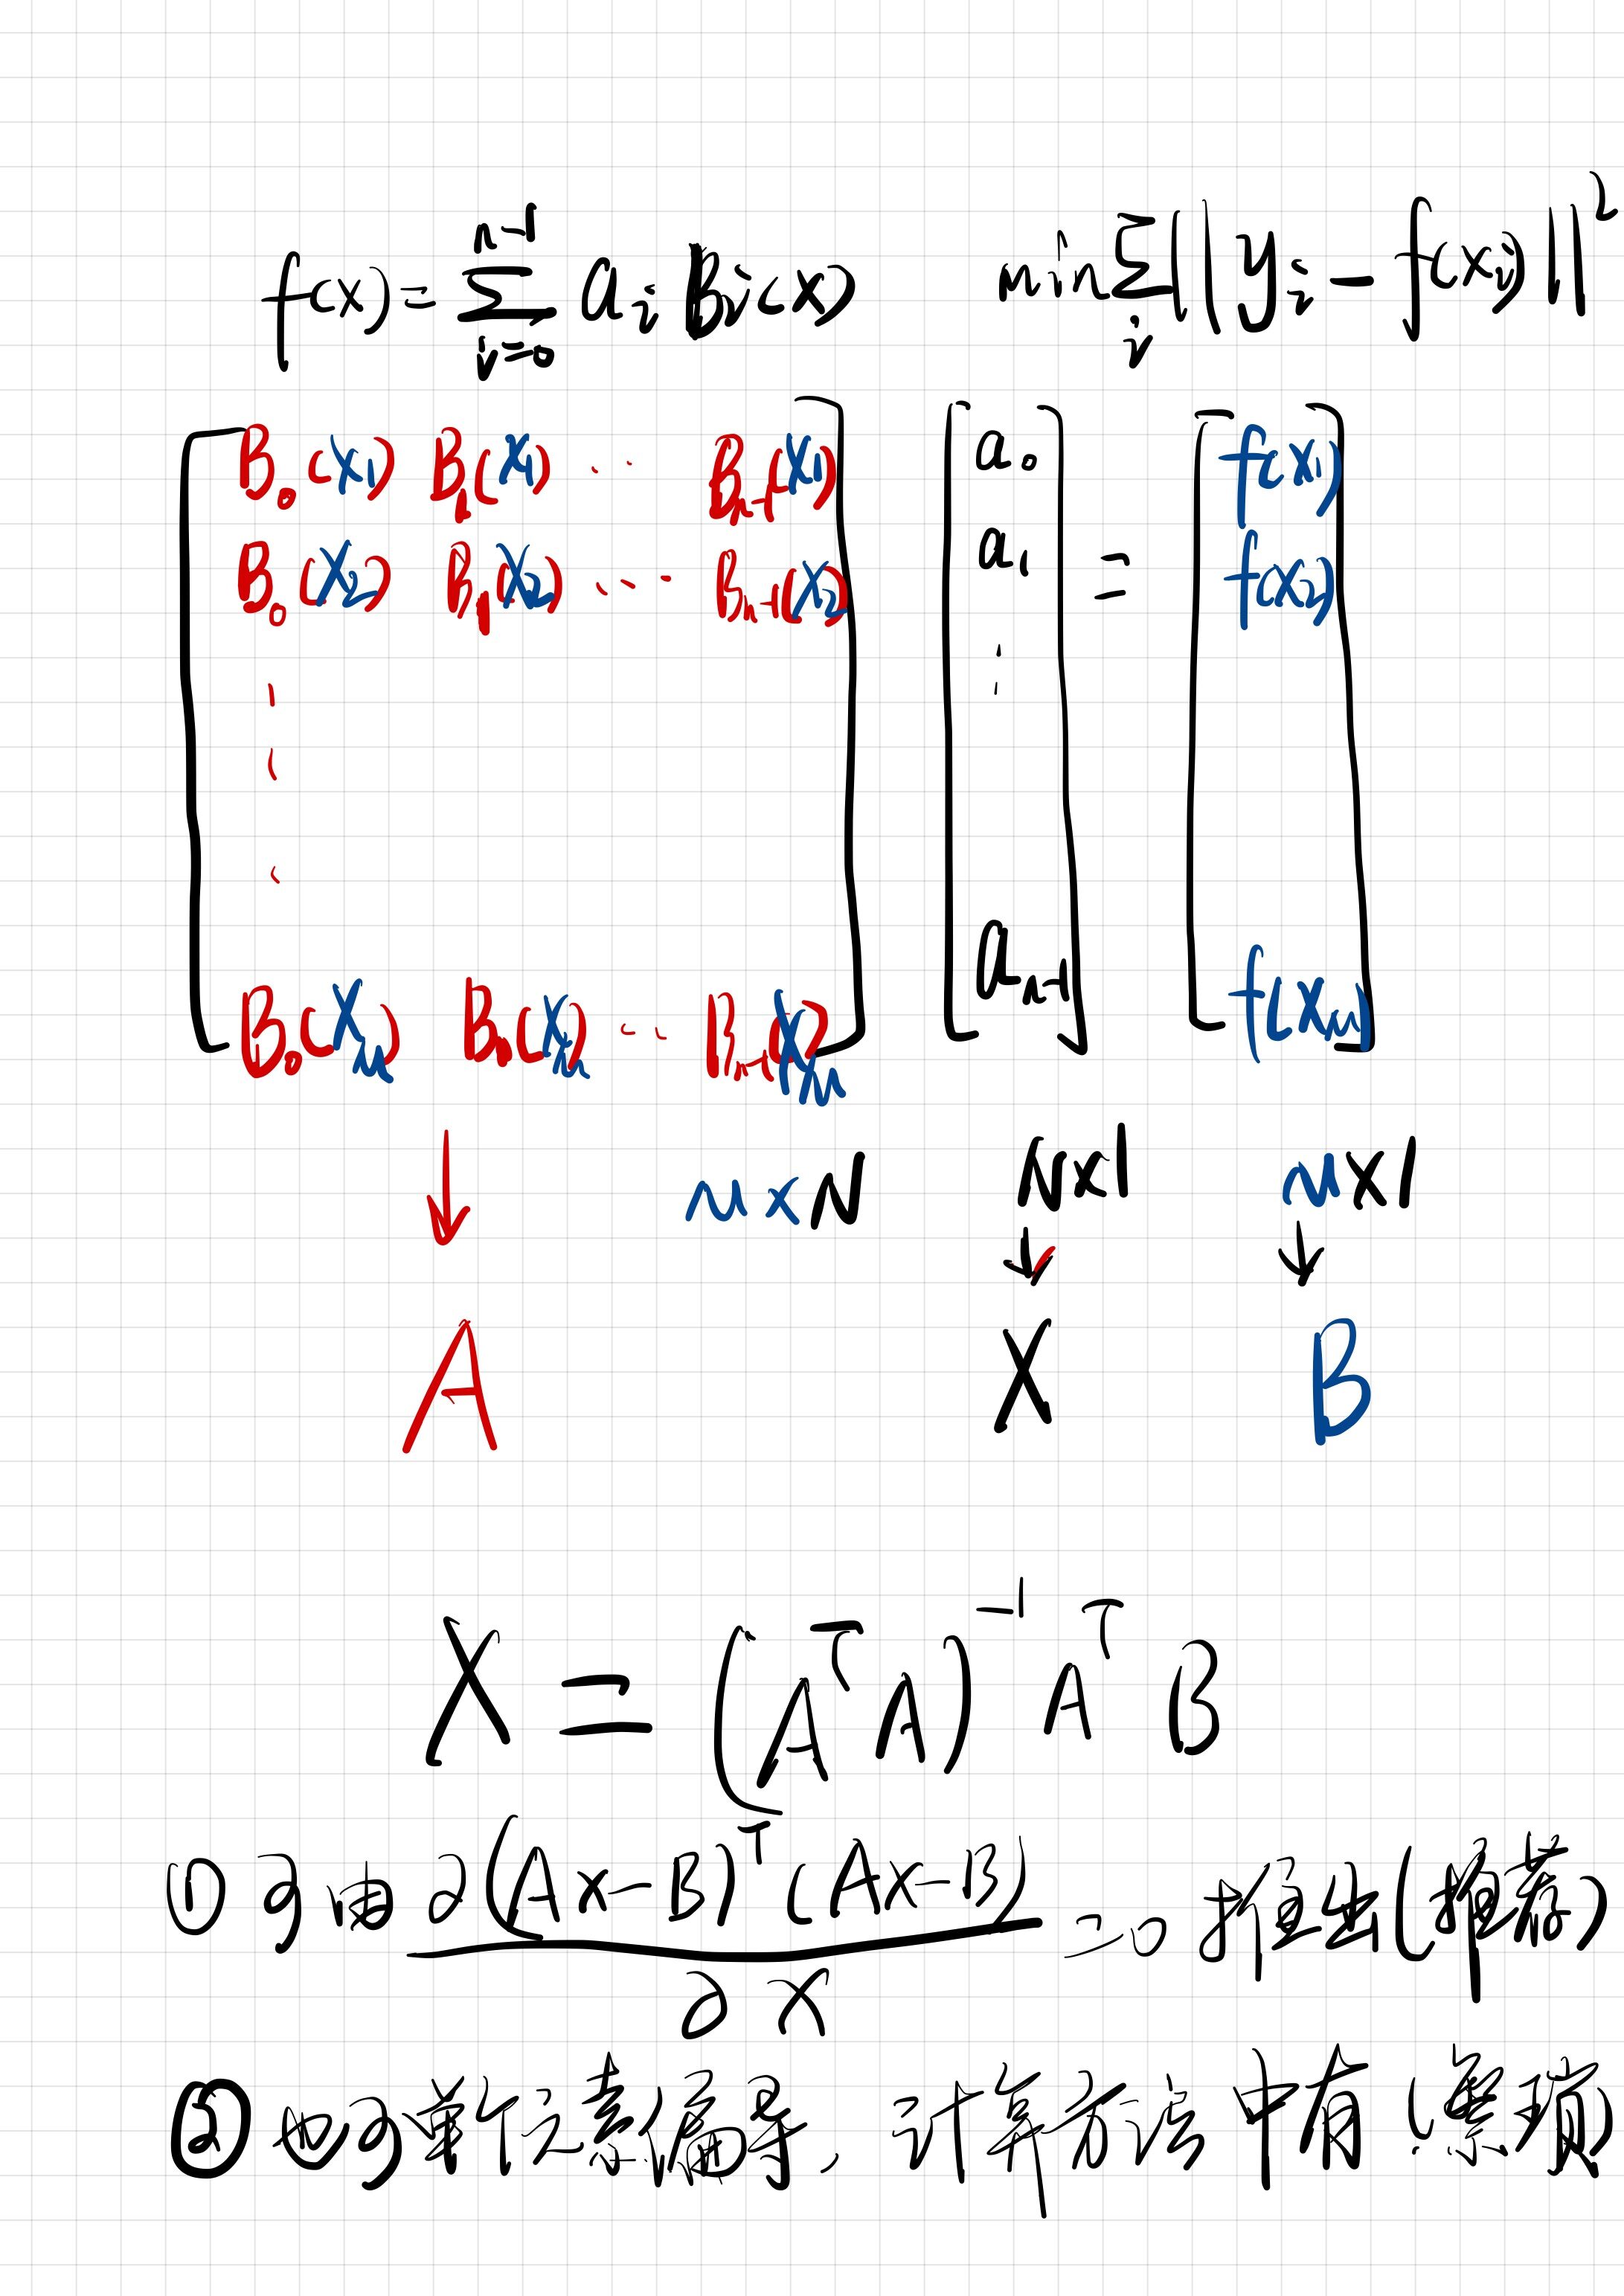 f(x) = \sum_{i=0}^{n-1} a_i B_i(x)  min \sum_i ||y_i - f(x_i)||^2
B_0(x_1) B_1(x_1) ... B_{n-1}(x_1)  a_0  f(x_1)
B_0(x_2) B_1(x_2) ... B_{n-1}(x_2)  a_1 = f(x_2)
B_0(x_m) B_1(x_m) ... B_{n-1}(x_m)  a_{n-1}  f(x_m)
M×N  N×1  M×1
A  X  B
X = (A^T A)^{-1} A^T B
① 可由 ∂(AX-B)^T(AX-B) / ∂X =0 推出(推荐)
② 也可单个元素偏导, 计算方法中有(繁琐)